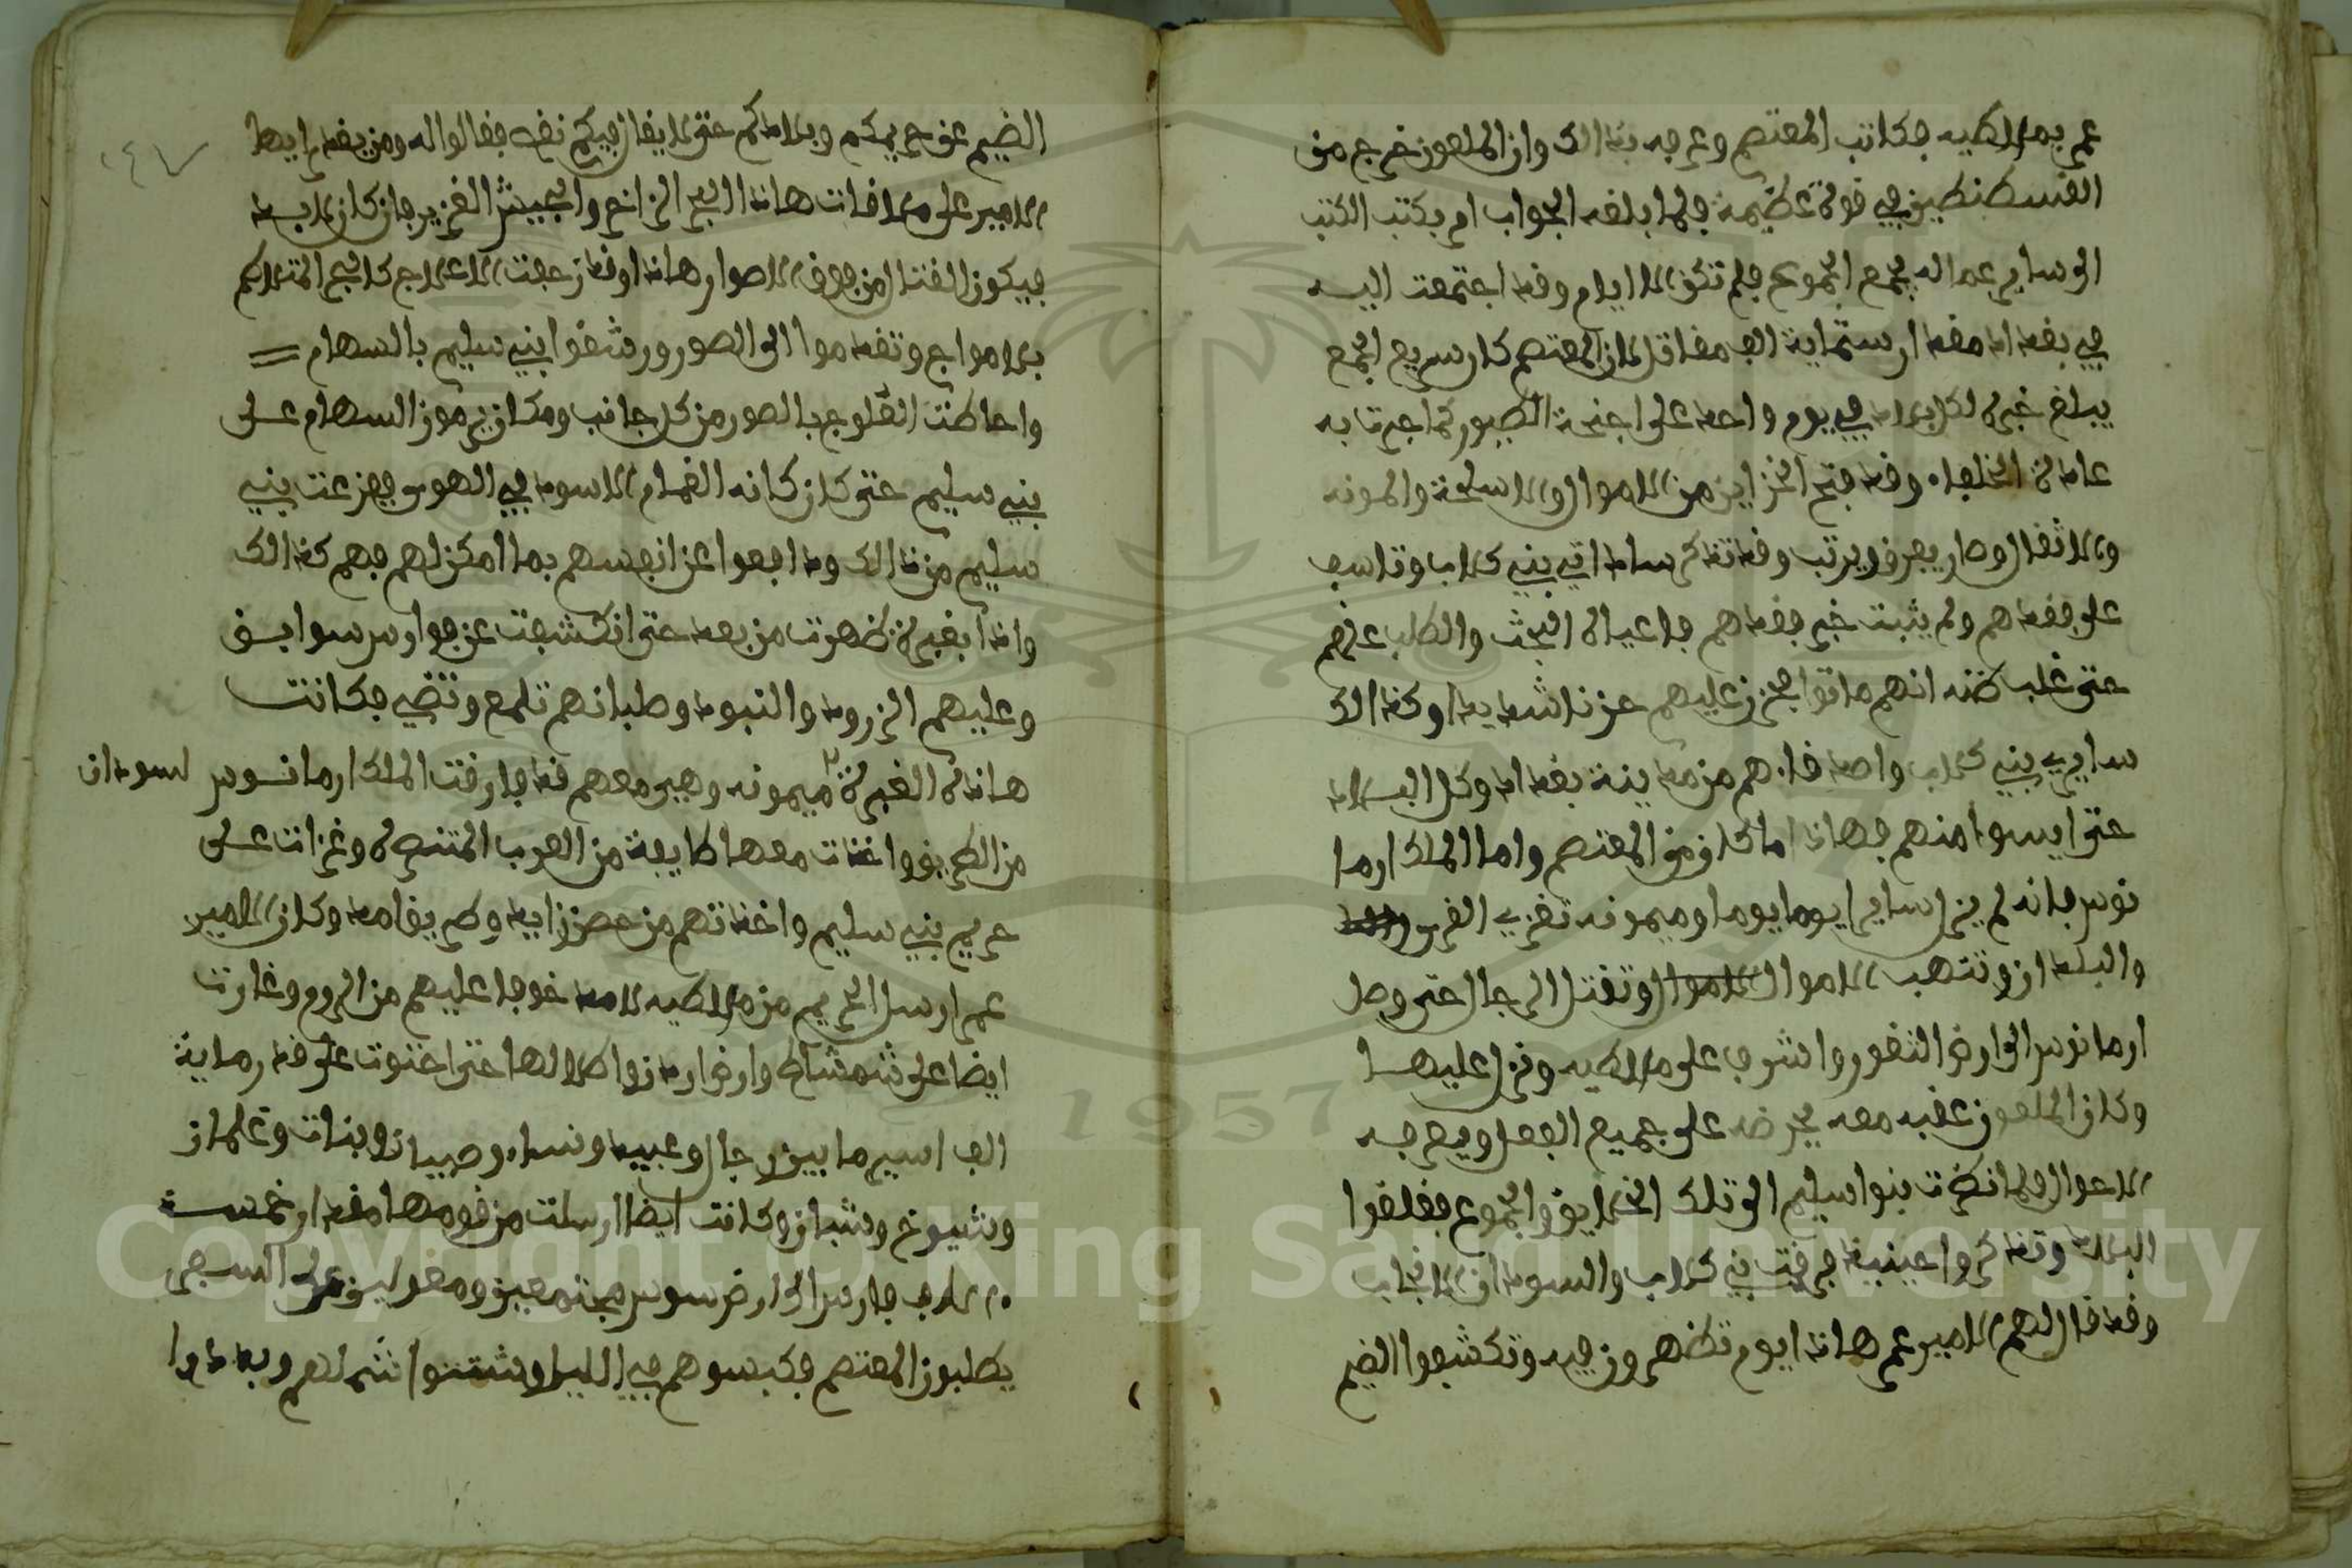 عمر بملاطيه فكاتب المعتصم وعرفه بذالك وان الملعون خرج من
القسطنطين في قوة عظيمة فلما بلغه الجواب امر بكتب الكتب
الى ساير عماله بجمع الجموع فلم تكن الا ايام وقد اجتمعت اليه
في بغداد مقدار ستماية الف مقاتل لان المعتصم كان سريع الجمع
يبلغ خبره لكل بلاد في يوم واحد على اجنحة الطيور كما جرت به
عادة الخلفاء وقد فتح الخزاين من الاموال والاسلحة والمونه
والاثقال وصار يفرق ويرتب وقد تذكر ساداتي بني كلاب وتاسف
على فقدهم ولم يثبت خبر فقدهم فاعياه البحث والطلب عنهم
حتى غلب ظنه انهم ماتوا فحزن عليهم حزنا شديدا وكذالك
ساير بني كلاب واصدقاءهم من مدينة بغداد وكل البلاد
حتى ايسوا منهم فهاذا ما كان من المعتصم واما الملك ارما
نوس فانه لم يزل سايرا يوما يوما وميمونه تغزي القرى
والبلدان وتنهب الاموال وتقتل الرجال حتى وصل
ارمانوس الى ارض الثغور واشرف على ملاطيه ونزل عليها
وكان الملعون عقبه معه يحرضه على جميع الفعل ويعرفه
الاحوال ولما نظرت بنوا سليم الى تلك الخلايق والجموع فقلقوا
البلاد وتذكروا حينيذ فرقت بني كلاب والسودان الانجاب
وقد قال لهم الامير عمر هاذا يوم تظهرون فيه وتكشفوا الضيم
الضيم عن حريمكم وبلادكم حتى لا يقال فيكم نقص فقالوا له ومن يقدم ايها
الامير على ملاقات هاذا البحر الزاخر والجيش الغزير فان كان لابد
فيكون القتال من فوق الاصوار هاذا وقد زحفت الاعلاج كالبحر المتلاطم
بالامواج وتقدموا الى الصور ورشقوا بني سليم بالسهام
واحاطت العلوج بالصور من كل جانب ومكان يرمون السهام على
بني سليم حتى كان كانه الغمام الاسود في الهوى ففزعت بني
سليم من ذالك ودافعوا عن انفسهم بما امكن لهم فهم كذالك
واذا بغبرة ظهرت من بعد حتى انكشفت عن فوارس سوابق
وعليهم الزرود والنبود وطبانهم تلمع وتضي فكانت
هاذه الغبرة ميمونه وهي معهم قد فارقت الملك ارمانوس لسودان
من الطريق واخذت معها طايفة من العرب المتنصره وغزات على
حريم بني سليم واخذتهم من حصن زايد وطريف امد وكان الامير
عمر ارسل الحريم من ملاطيه لامد خوفا عليهم من الروم وغارت
ايضا على شمشاط وارض ارمن واطلالها حتى احتوت على قدر ماية
الف اسير ما بين رجال وعبيد ونساء وصبيان وبنات وغلمان
وشيوخ وشبان وكانت ايضا ارسلت من قومها مقدار خمسة
الاف فارس الى ارض سوس مجتمعين ومعولين على السير
يطلبون المعتصم فكبسوهم في الليل وشتتوا شملهم